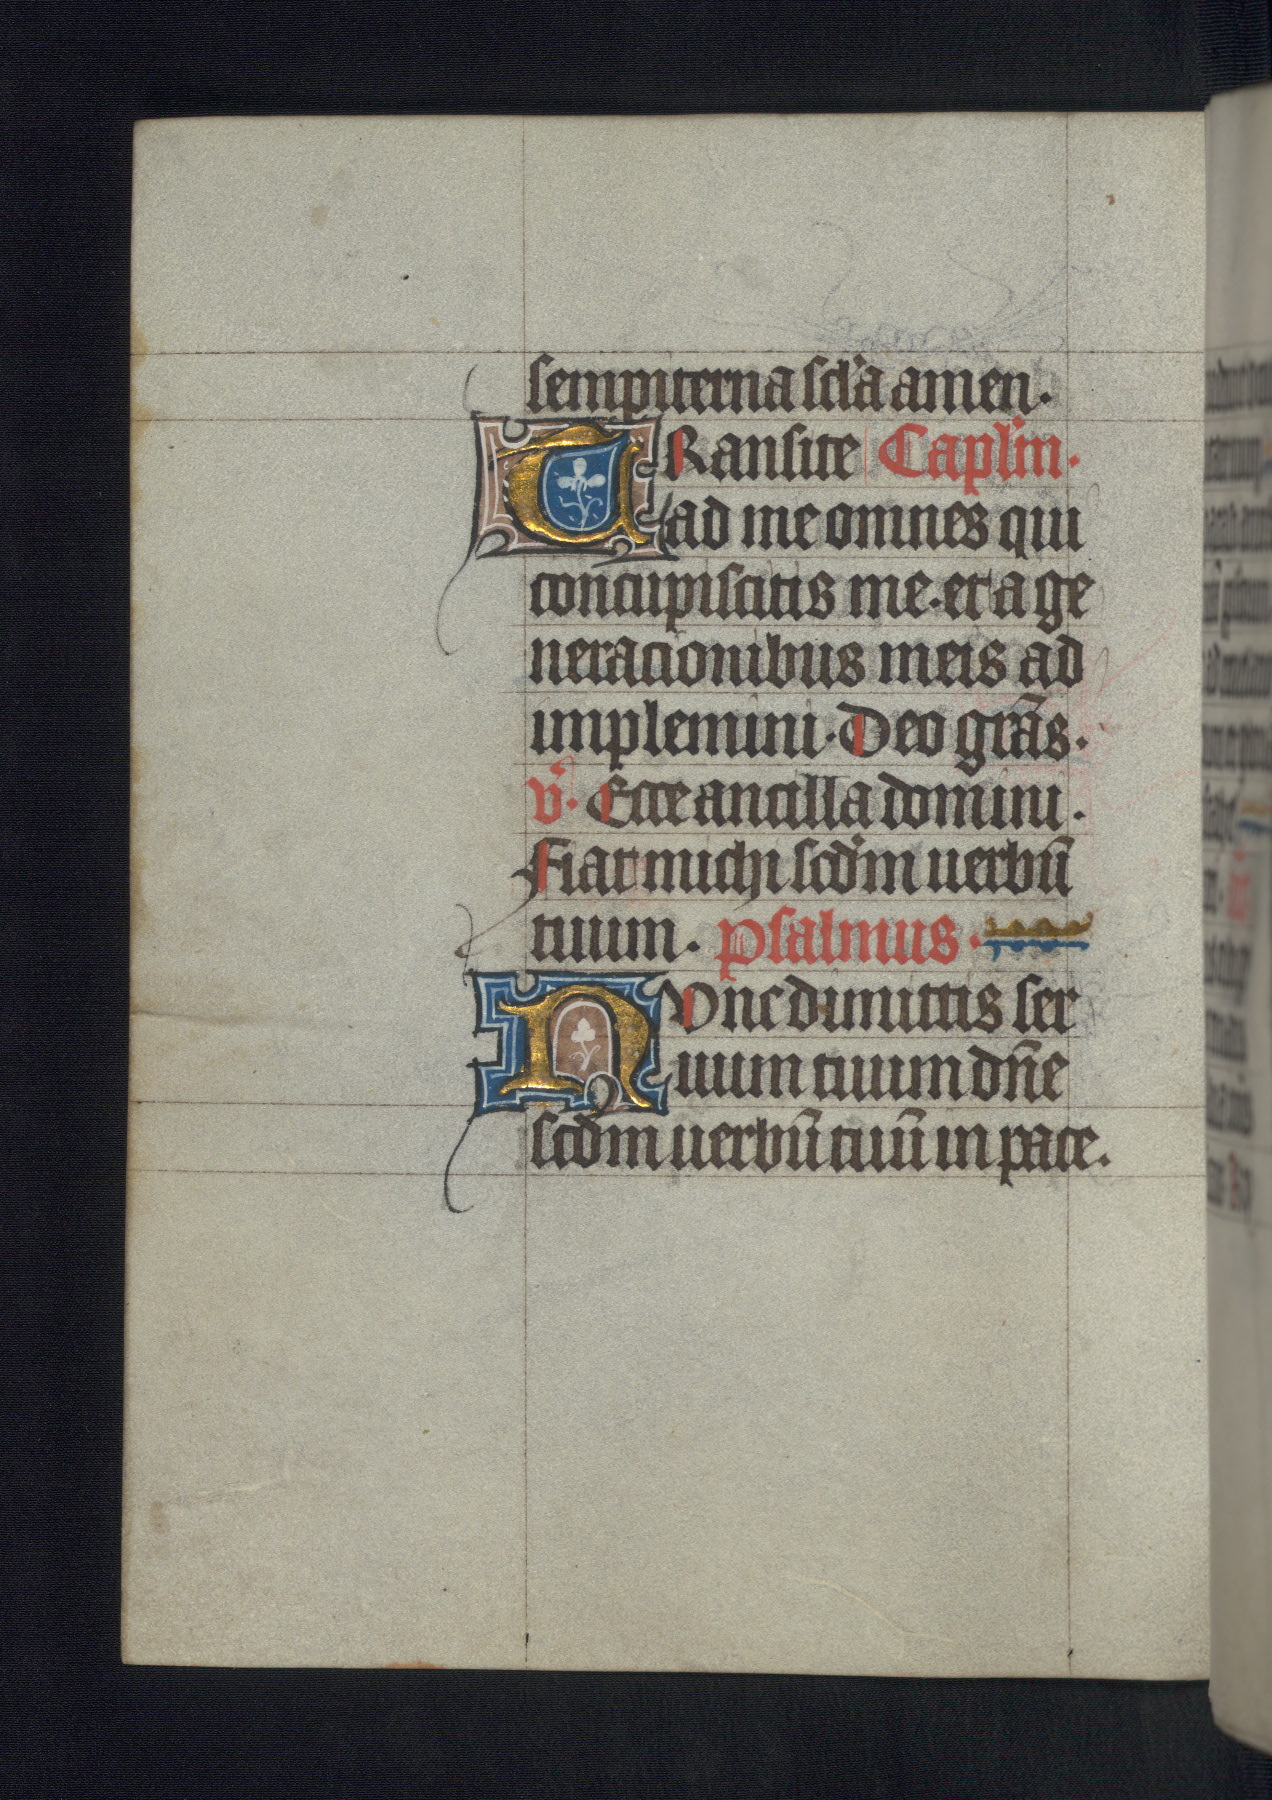 sempiterna scl'a amen.
TRansite Caplm.
ad me omnes qui
concupiscitis me. et a ge
neracionibus meis ad
implemini. Deo grãs.
v̓. Ecce ancilla domini.
Fiat michi scdm uerbū
tuum. psalmus.
NVnc dimittis ser
uum tuum dñe
scdm uerbū tuū in pace.